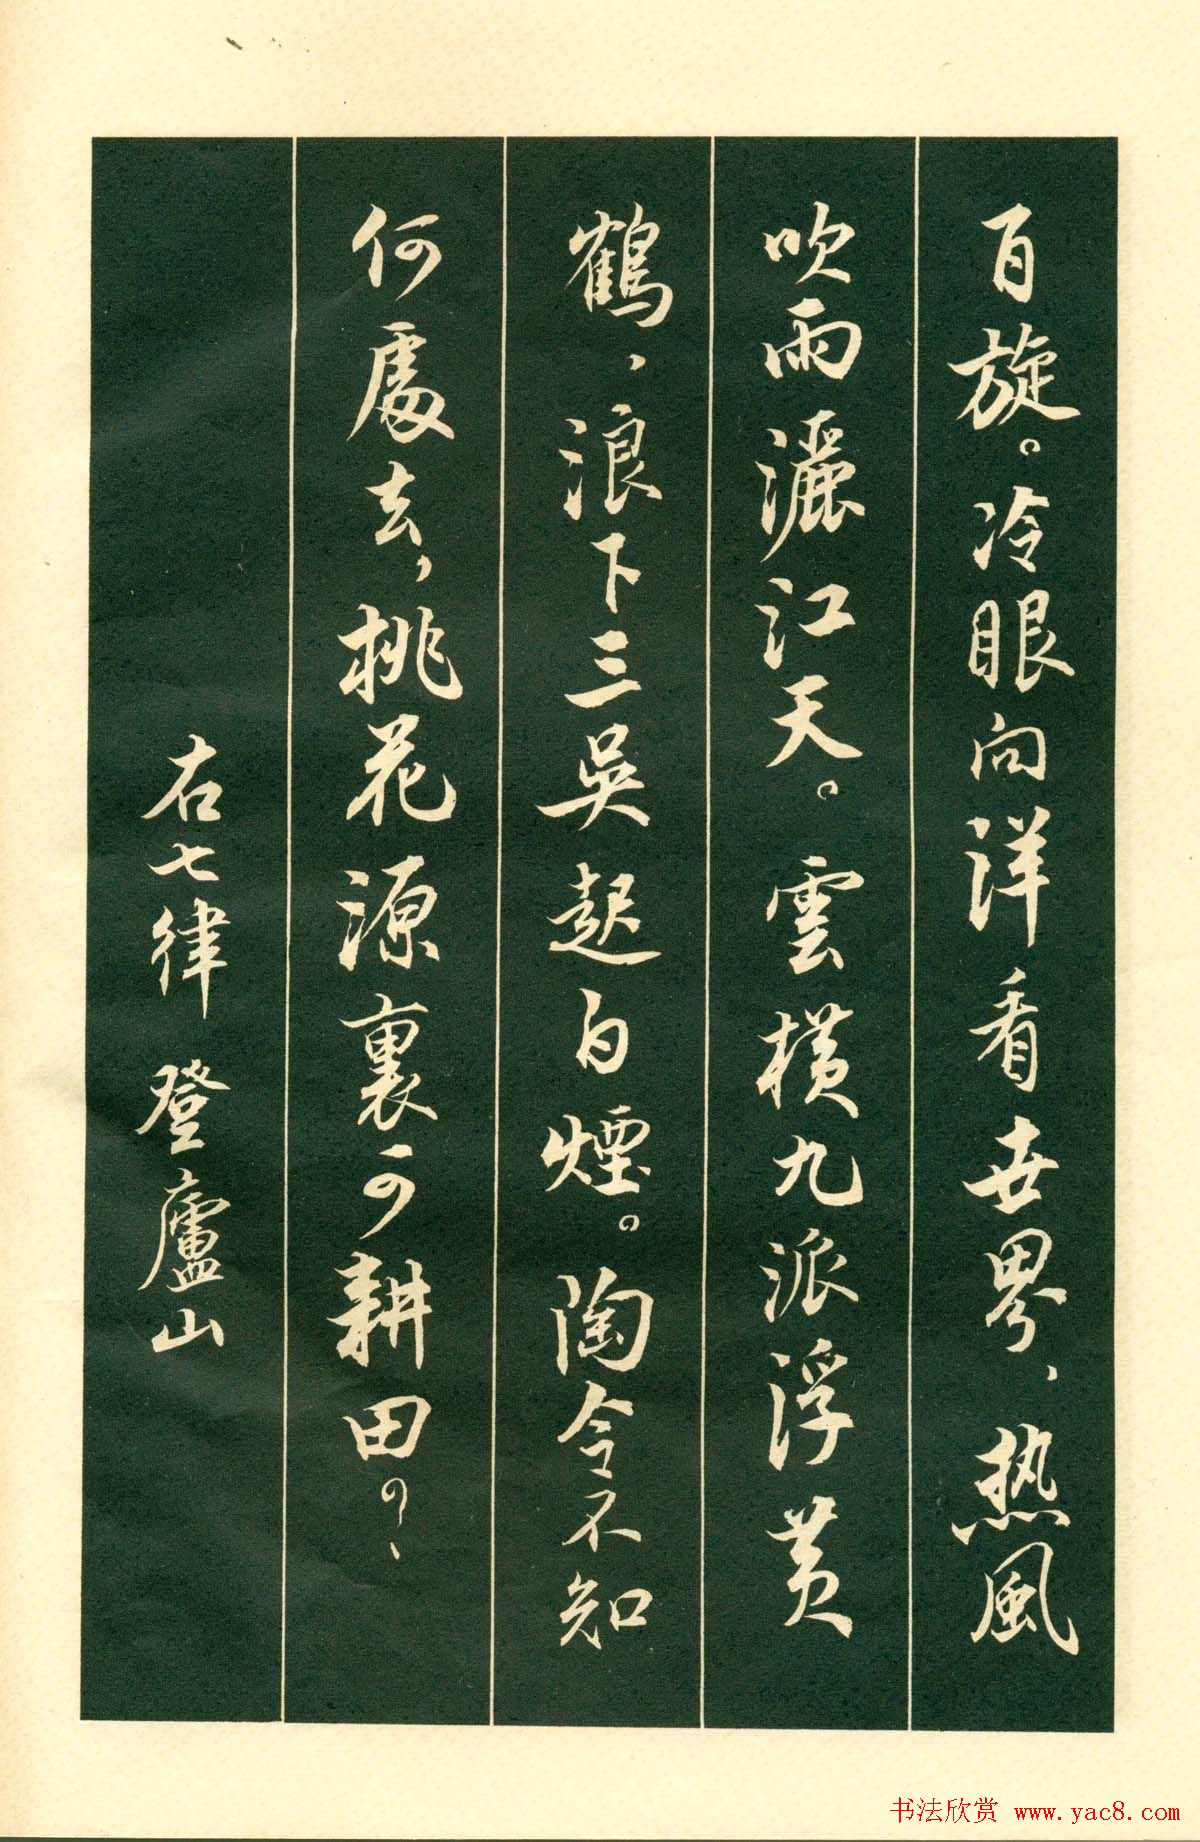 百旋。冷眼向洋看世界、热風
吹雨灑江天。雲橫九派浮黄
鶴、浪下三吳起白煙。陶令不知
何處去，桃花源裏可耕田？
右七律 登廬山
书法欣赏 www.yac8.com